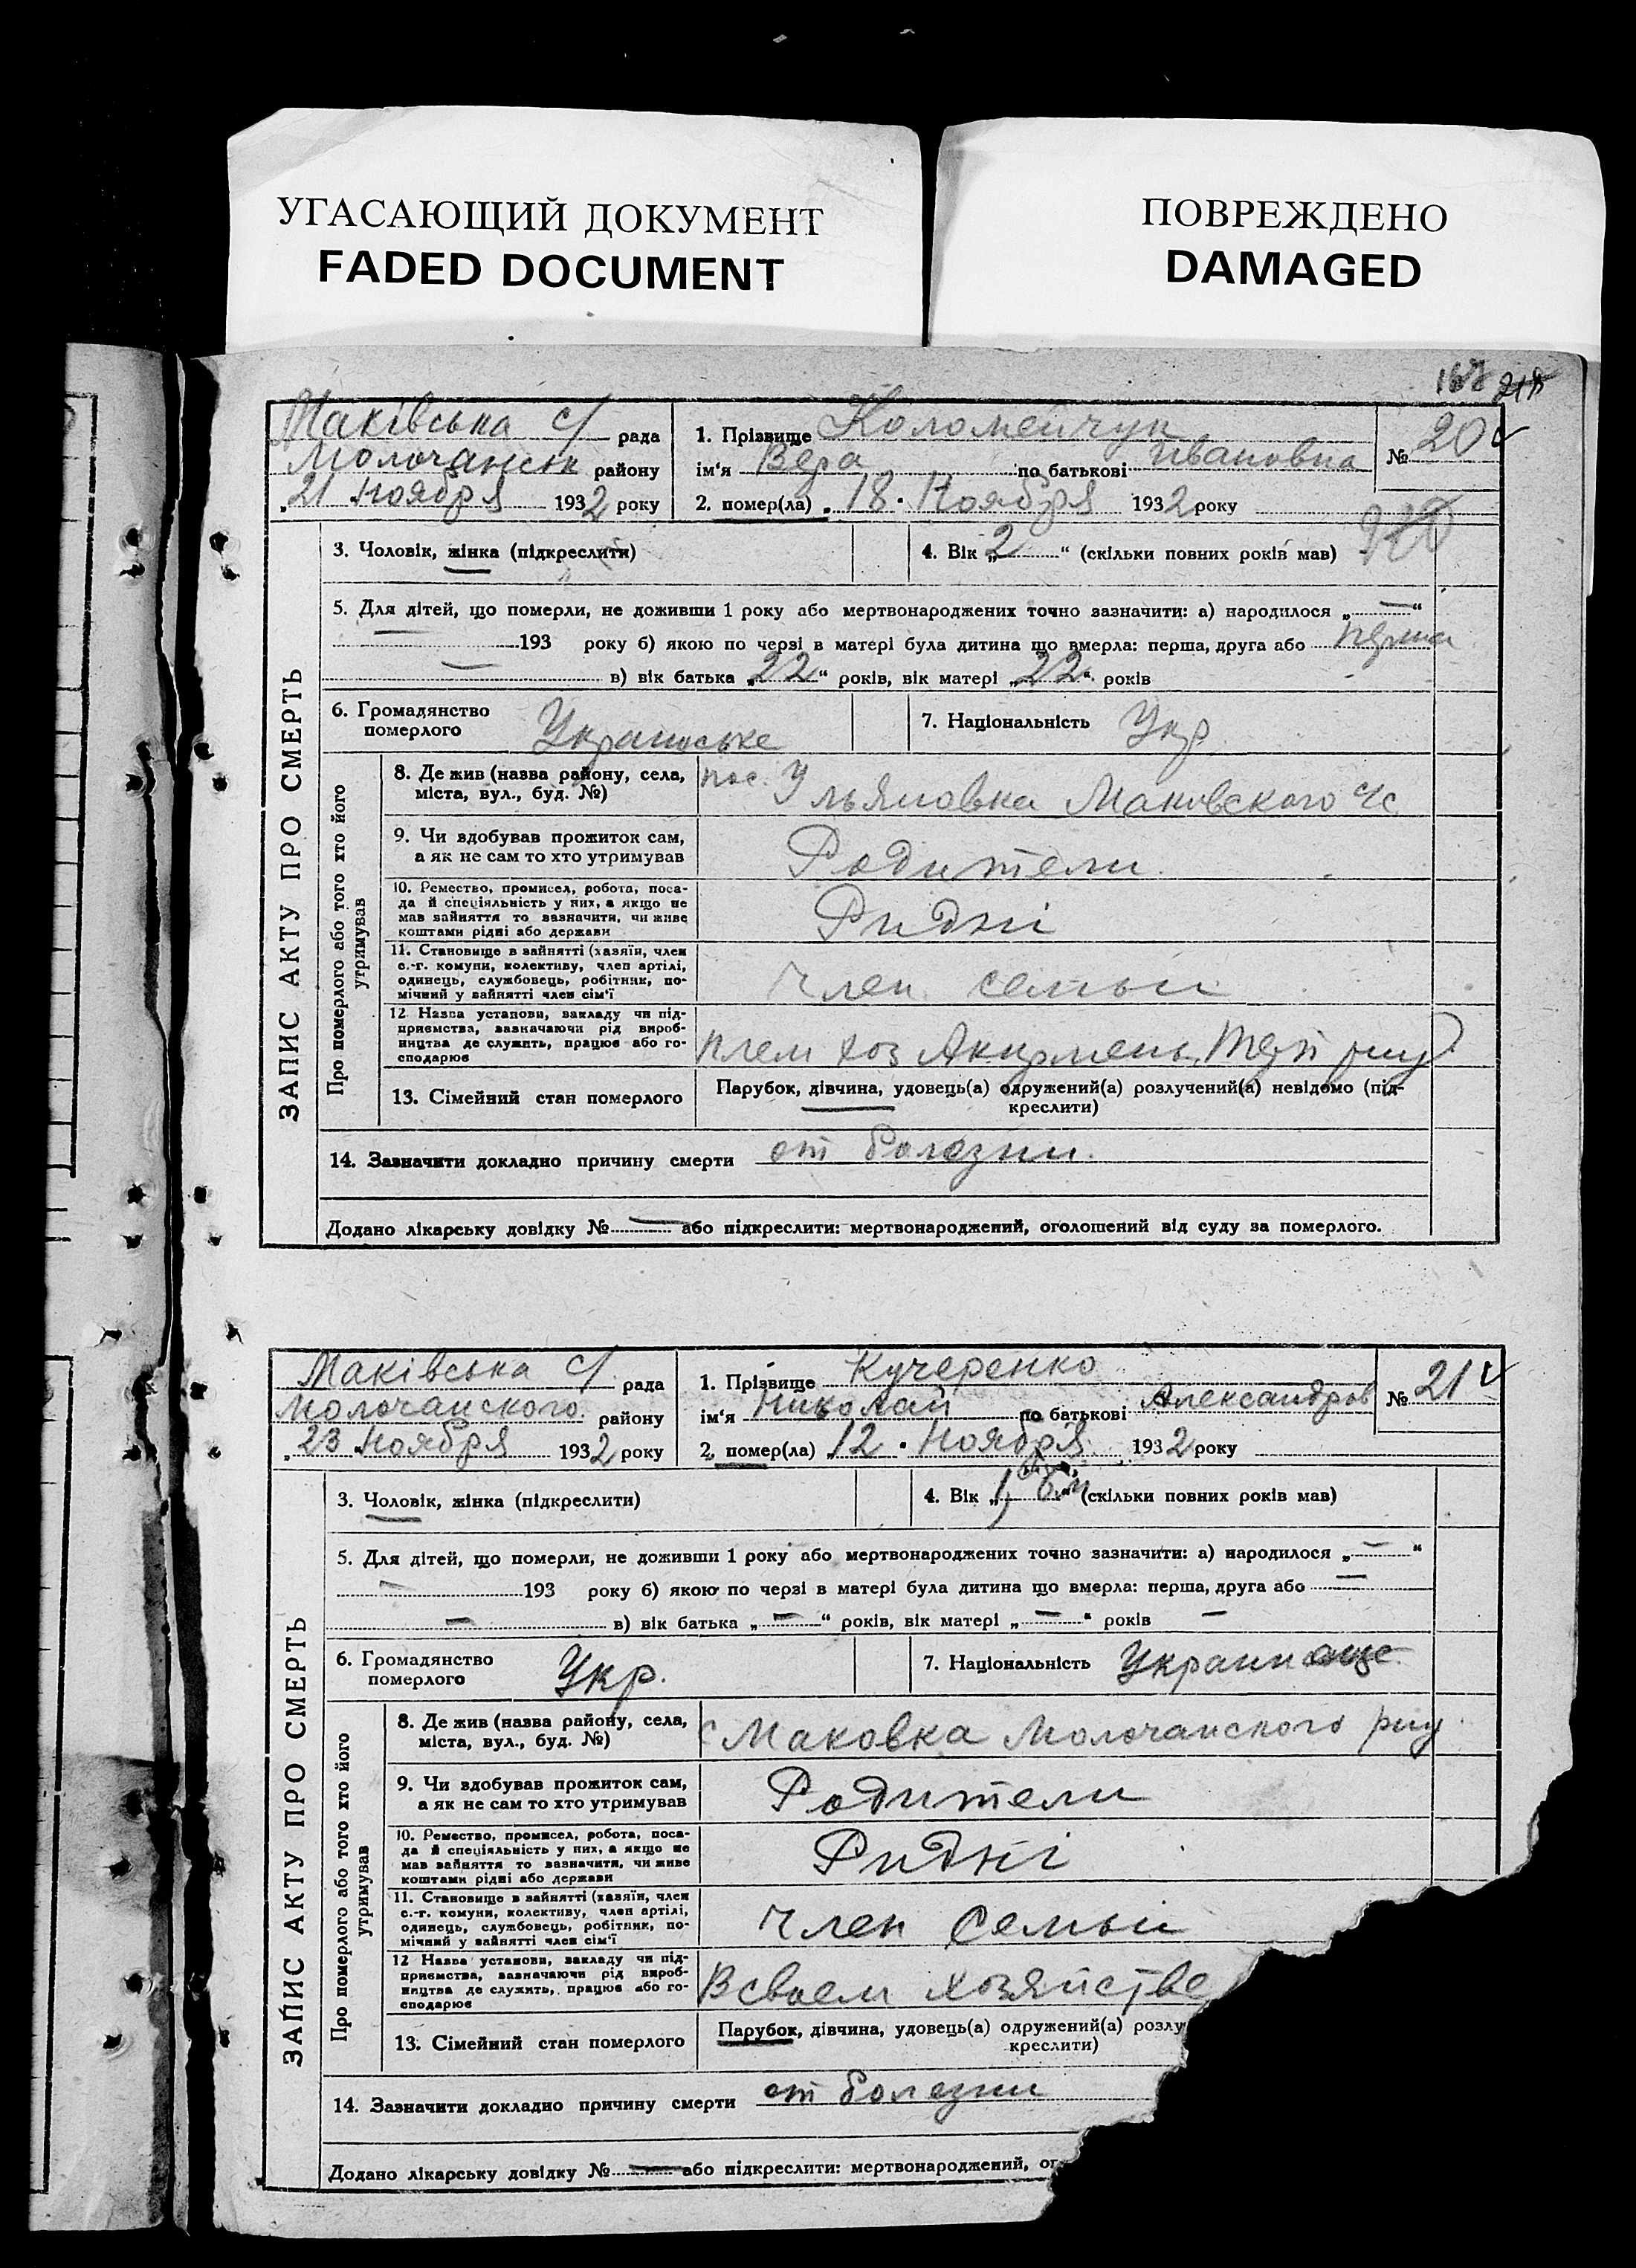 УГАСАЮЩИЙ ДОКУМЕНТ
FADED DOCUMENT
ПОВРЕЖДЕНО
DAMAGED
Маківська с/ рада
Молочанськ району
„21 Ноября 1932 року
1. Прізвище Коломейчук
ім'я Вера по батькові Ивановна
2. помер(ла) „18 Ноября 1932 року
№ 20
3. Чоловік, жінка (підкреслити)
4. Вік „2“ (скільки повних років мав)
5. Для дітей, що померли, не доживши 1 року або мертвонароджених точно зазначити: а) народилося „—“
— 193 року б) якою по черзі в матері була дитина що вмерла: перша, друга або перша
— в) вік батька „22“ років, вік матері „22“ років
6. Громадянство
померлого
Украинське
7. Національність Укр
ЗАПИС АКТУ ПРО СМЕРТЬ
Про померлого або того хто його
утримував
8. Де жив (назва району, села,
міста, вул., буд. №)
пос. Ульяновка Маковского с/с
9. Чи вдобував прожиток сам,
а як не сам то хто утримував
Родители
10. Ремество, промисел, робота, поса-
да й спеціяльність у них, а якщо не
мав зайняття то зазначити, чи живе
коштами рідні або держави
Ридні
11. Становище в зайнятті (хазяїн, член
с.-г. комуни, колективу, член артілі,
одинець, службовець, робітник, по-
мічний у зайнятті член сім'ї
Член семьи
12 Назва установи, закладу чи під-
приємства, зазначаючи рід вироб-
ництва де служить, працює або го-
сподарює
племхоз
13. Сімейний стан померлого
Парубок, дівчина, удовець(а) одружений(а) розлучений(а) невідомо (під-
креслити)
14. Зазначити докладно причину смерти от болезни
Додано лікарську довідку № — або підкреслити: мертвонароджений, оголошений від суду за померлого.
Маківська с/ рада
Молочанского району
„23 Ноября 1932 року
1. Прізвище Кучеренко
ім'я Николай по батькові Александров
2. помер(ла) 12 Ноября 1932 року
№ 21
3. Чоловік, жінка (підкреслити)
4. Вік „1, “ (скільки повних років мав)
5. Для дітей, що померли, не доживши 1 року або мертвонароджених точно зазначити: а) народилося „—“
— 193 року б) якою по черзі в матері була дитина що вмерла: перша, друга або —
— в) вік батька „—“ років, вік матері „—“ років —
6. Громадянство
померлого
Укр.
7. Національність
ЗАПИС АКТУ ПРО СМЕРТЬ
Про померлого або того хто його
утримував
8. Де жив (назва району, села,
міста, вул., буд. №)
с Маковка Молочанского
9. Чи вдобував прожиток сам,
а як не сам то хто утримував
Родители
10. Ремество, промисел, робота, поса-
да й спеціяльність у них, а якщо не
мав зайняття то зазначити, чи живе
коштами рідні або держави
Ридні
11. Становище в зайнятті (хазяїн, член
с.-г. комуни, колективу, член артілі,
одинець, службовець, робітник, по-
мічний у зайнятті член сім'ї
Член семьи
12 Назва установи, закладу чи під-
приємства, зазначаючи рід вироб-
ництва де служить, працює або го-
сподарює
В своем хозяйстве
13. Сімейний стан померлого
Парубок, дівчина, удовець(а) одружений(а) розлу
креслити)
14. Зазначити докладно причину смерти от болезни
Додано лікарську довідку № — або підкреслити: мертвонароджений, ог